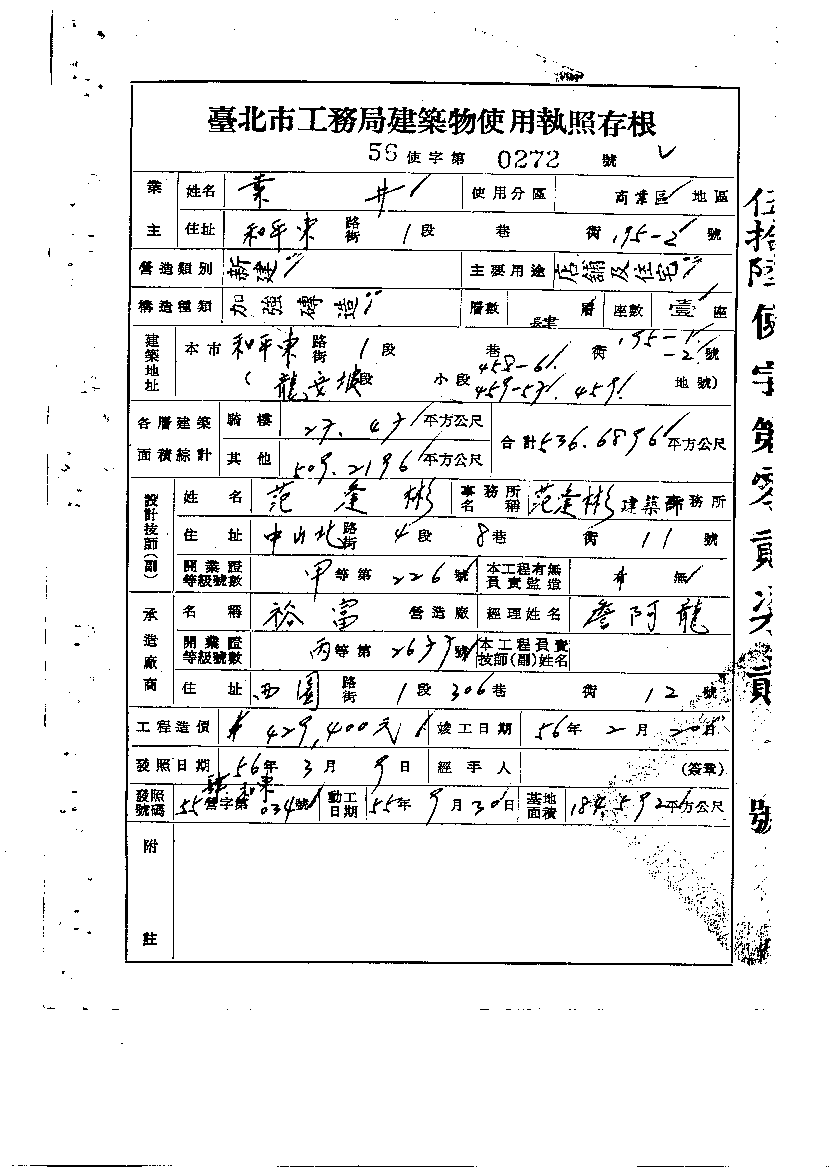 臺北市工務局建築物使用執照存根
56使字第 0272 號
業主 姓名 葉 井 使用分區 商業區 地區
住址 和平東路街 1段 巷 街 195-2 號
營造類別 新建 主要用途 店舖及住宅
構造種類 加強磚造 層數 肆層 座數 壹座
建築地址 本市 和平東路街 1段 巷 街 195-1. -2. 號
(龍安坡段 小段 458-61. 459. 地號)
各層建築面積綜計 騎樓 平方公尺 合計 536.6896 平方公尺
其他 509.2196 平方公尺
設計技師(副) 姓名 范逢彬 事務所名稱 范逢彬建築師事務所
住址 中山北路街 4段 8巷 街 11 號
開業證等級號數 甲等第 226 號 本工程有無員責監造 有 無
承造廠商 名稱 裕富 營造廠 經理姓名 詹阿龍
開業證等級號數 丙等第 號 本工程員責技師(副)姓名
住址 西園路街 1段 306巷 街 12 號
工程造價 429,400元 竣工日期 56年 2月 20日
發照日期 56年 3月 9日 經手人 (簽章)
發照號碼 55營字第 034號 動工日期 55年 9月 30日 基地面積 184.592平方公尺
附註
伍拾陸使字第零貳柒貳號